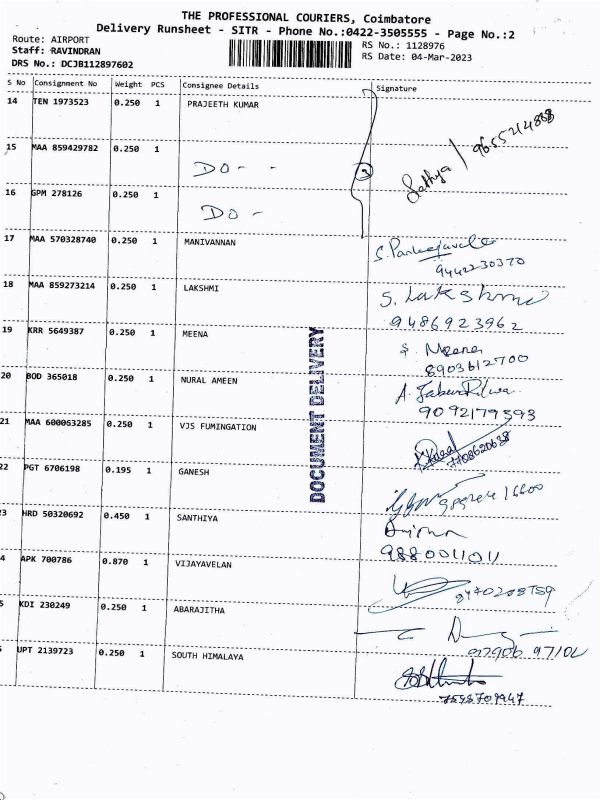 THE PROFESSIONAL COURIERS, Coimbatore
Delivery Runsheet - SITR - Phone No.:0422-3505555 - Page No.:2
Route: AIRPORT
Staff: RAVINDRAN
DRS No.: DCJB112897602
RS No.: 1128976
RS Date: 04-Mar-2023
S No Consignment No Weight PCS Consignee Details Signature
14 TEN 1973523 0.250 1 PRAJEETH KUMAR
Sathya /
15 MAA 859429782 0.250 1 DO - -
16 GPM 278126 0.250 1 DO -
17 MAA 570328740 0.250 1 MANIVANNAN
9442230370
18 MAA 859273214 0.250 1 LAKSHMI S. Lakshmi
9486923962
19 KRR 5649387 0.250 1 MEENA S. Meena
8903612700
20 BOD 365018 0.250 1 NURAL AMEEN
9092179593
21 MAA 600063285 0.250 1 VJS FUMINGATION
7708620638
22 PGT 6706198 0.195 1 GANESH
23 HRD 50320692 0.450 1 SANTHIYA
9880011011
4 APK 700786 0.870 1 VIJAYAVELAN
5 KDI 230249 0.250 1 ABARAJITHA
UPT 2139723 0.250 1 SOUTH HIMALAYA
DOCUMENT DELIVERY